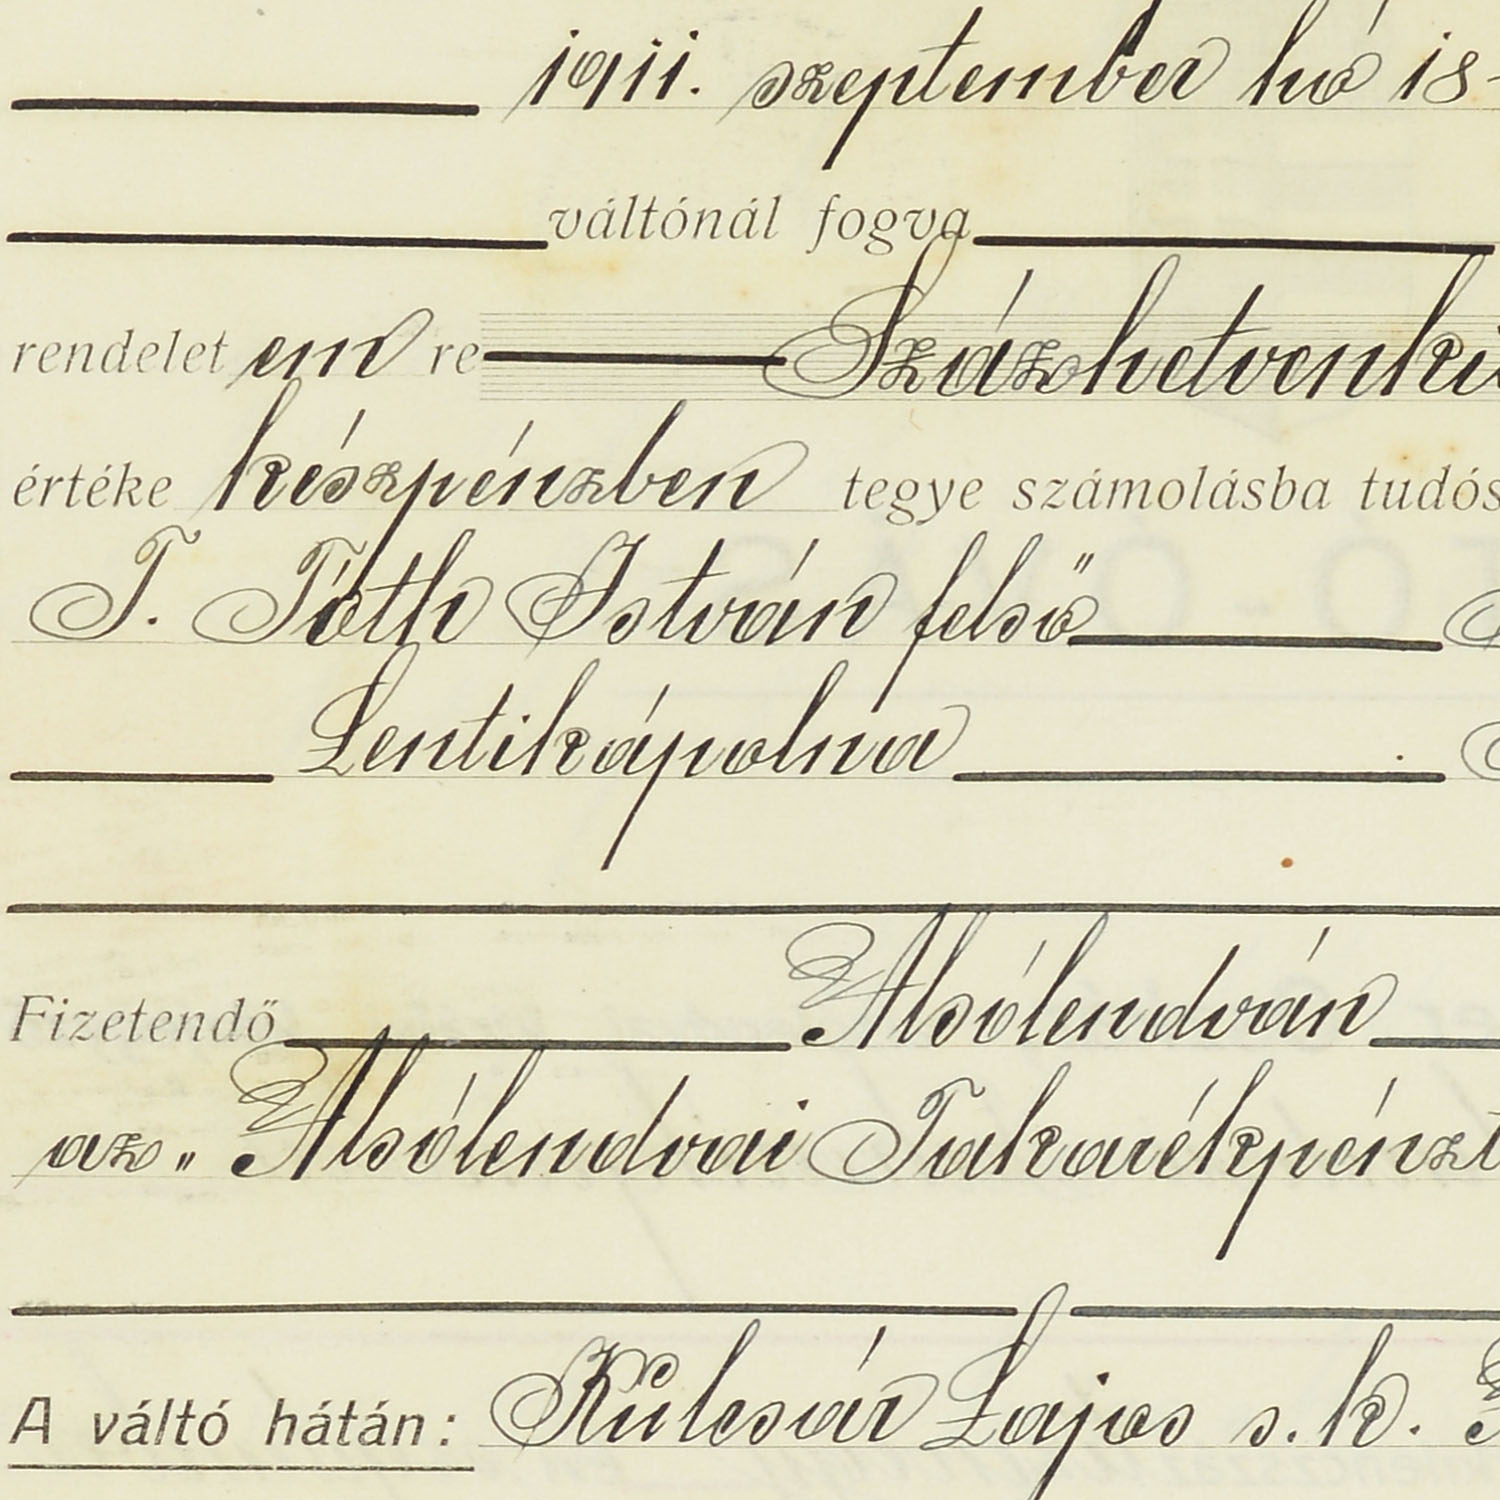 1911. szeptember hó 18-
váltónál fogva
rendelet em re Százhetvenki
értéke készpénzben tegye számolásba tudós
T. Tóth István felső
Lentikápolna
Fizetendő Alsólendván
az „Alsólendvai Takarékpénzt
A váltó hátán: Kulcsár Lajos s. k.